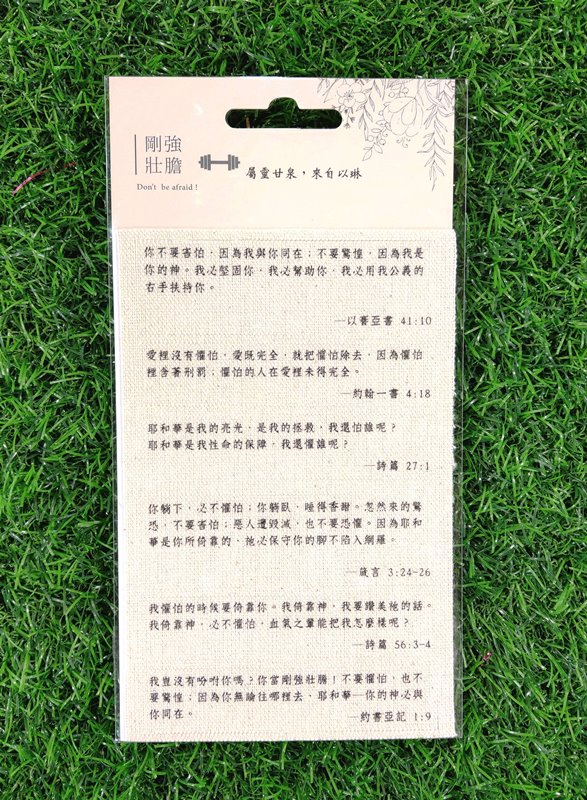 剛強
壯膽
Don't be afraid !
屬靈甘泉，來自以琳
你不要害怕，因為我與你同在；不要驚惶，因為我是
你的神。我必堅固你，我必幫助你，我必用我公義的
右手扶持你。
—以賽亞書 41:10
愛裡沒有懼怕，愛既完全，就把懼怕除去，因為懼怕
裡含著刑罰；懼怕的人在愛裡未得完全。
—約翰一書 4:18
耶和華是我的亮光，是我的拯救，我還怕誰呢？
耶和華是我性命的保障，我還懼誰呢？
—詩篇 27:1
你躺下，必不懼怕；你躺臥，睡得香甜。忽然來的驚
恐，不要害怕；惡人遭毀滅，也不要恐懼。因為耶和
華是你所倚靠的、祂必保守你的腳不陷入網羅。
—箴言 3:24-26
我懼怕的時候要倚靠你。我倚靠神，我要讚美祂的話。
我倚靠神，必不懼怕，血氣之輩能把我怎麼樣呢？
—詩篇 56:3-4
我豈沒有吩咐你嗎？你當剛強壯膽！不要懼怕，也不
要驚惶；因為你無論往哪裡去，耶和華—你的神必與
你同在。
—約書亞記 1:9